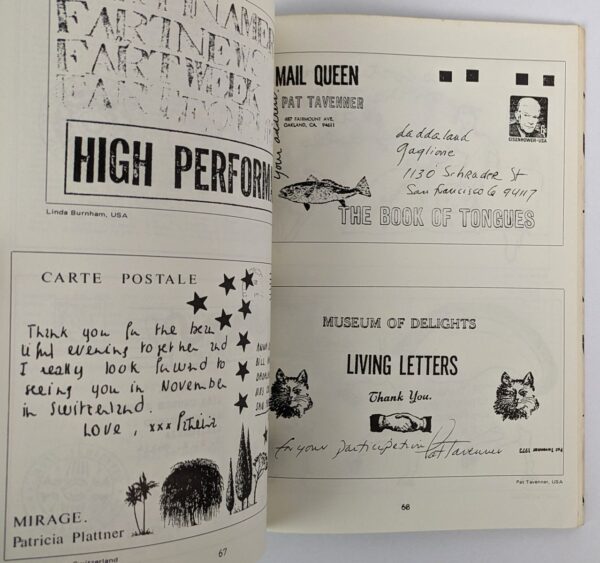 HIGH PERFORM
Linda Burnham, USA
CARTE POSTALE
Thank you for the beau
tiful evening together and
I really look forward to
seeing you in November
in Switzerland.
LOVE, xxx
MIRAGE.
Patricia Plattner
Switzerland
67
MAIL QUEEN
PAT TAVENNER
487 FAIRMOUNT AVE.
OAKLAND, CA. 94611
your address:
EISENHOWER-USA
daddaland
gaglione
1130 Schrader St
San Francisco Ca 94117
THE BOOK OF TONGUES
MUSEUM OF DELIGHTS
LIVING LETTERS
Thank You.
for your participation
Pat Tavenner
Pat Tavenner 1975
Pat Tavenner, USA
68